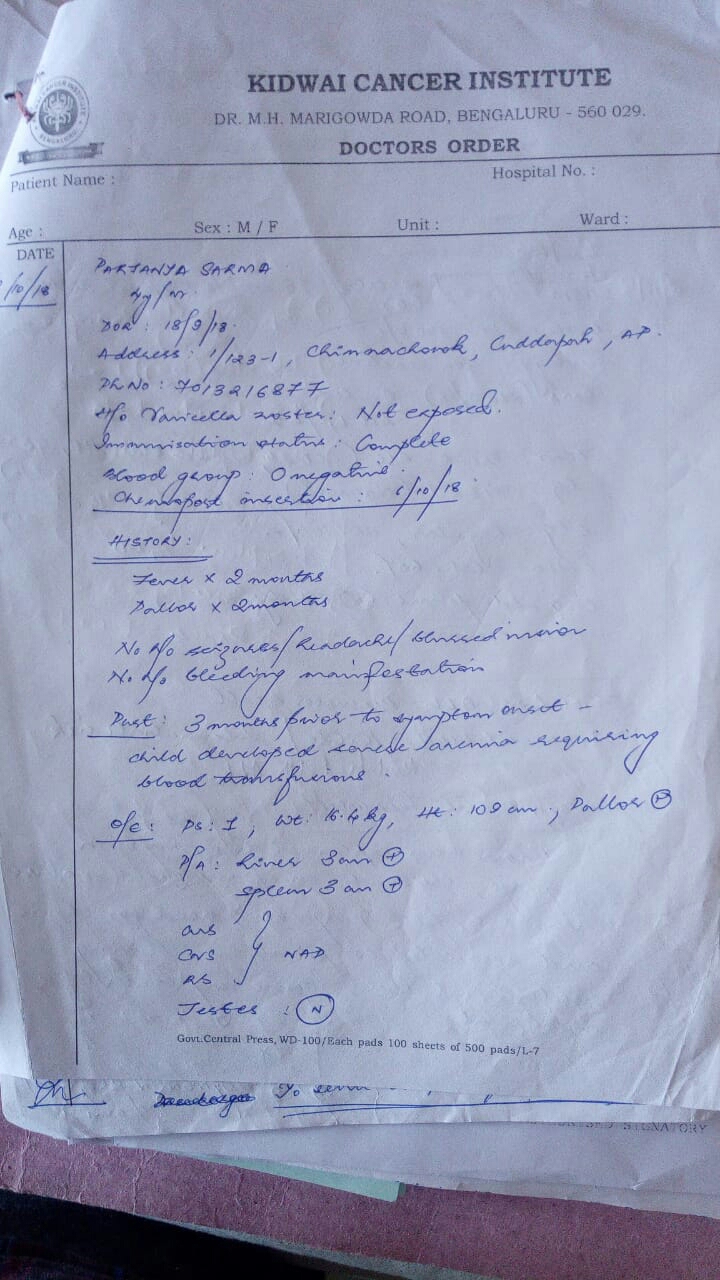 KIDWAI CANCER INSTITUTE
DR. M.H. MARIGOWDA ROAD, BENGALURU - 560 029.
DOCTORS ORDER
Patient Name :
Hospital No. :
Age :
Sex : M / F
Unit :
Ward :
DATE
/10/18
PARJANYA SARMA
4y/m.
DOR : 18/9/18.
Address : 1/123-1, Chinnachowk, Cuddapah, AP.
Ph No : 7013216877
H/o Varicella zoster : Not exposed.
Immunisation status : Complete
Blood group : O negative.
Chemoport insertion : 6/10/18.
HISTORY :
Fever x 2 months
Pallor x 2 months
No H/o seizures/headache/blurred vision
No H/o bleeding manifestation
Past : 3 months prior to symptom onset -
child developed severe anemia requiring
blood transfusions.
O/E : PS : 1, Wt : 16.4 kg, Ht : 109 cm, Pallor ⊕
P/A : Liver 3 cm ⊕
spleen 3 cm ⊕
CNS
CVS } NAD
RS
Testes : (N)
Govt.Central Press, WD-100/Each pads 100 sheets of 500 pads/L-7
SIGNATORY